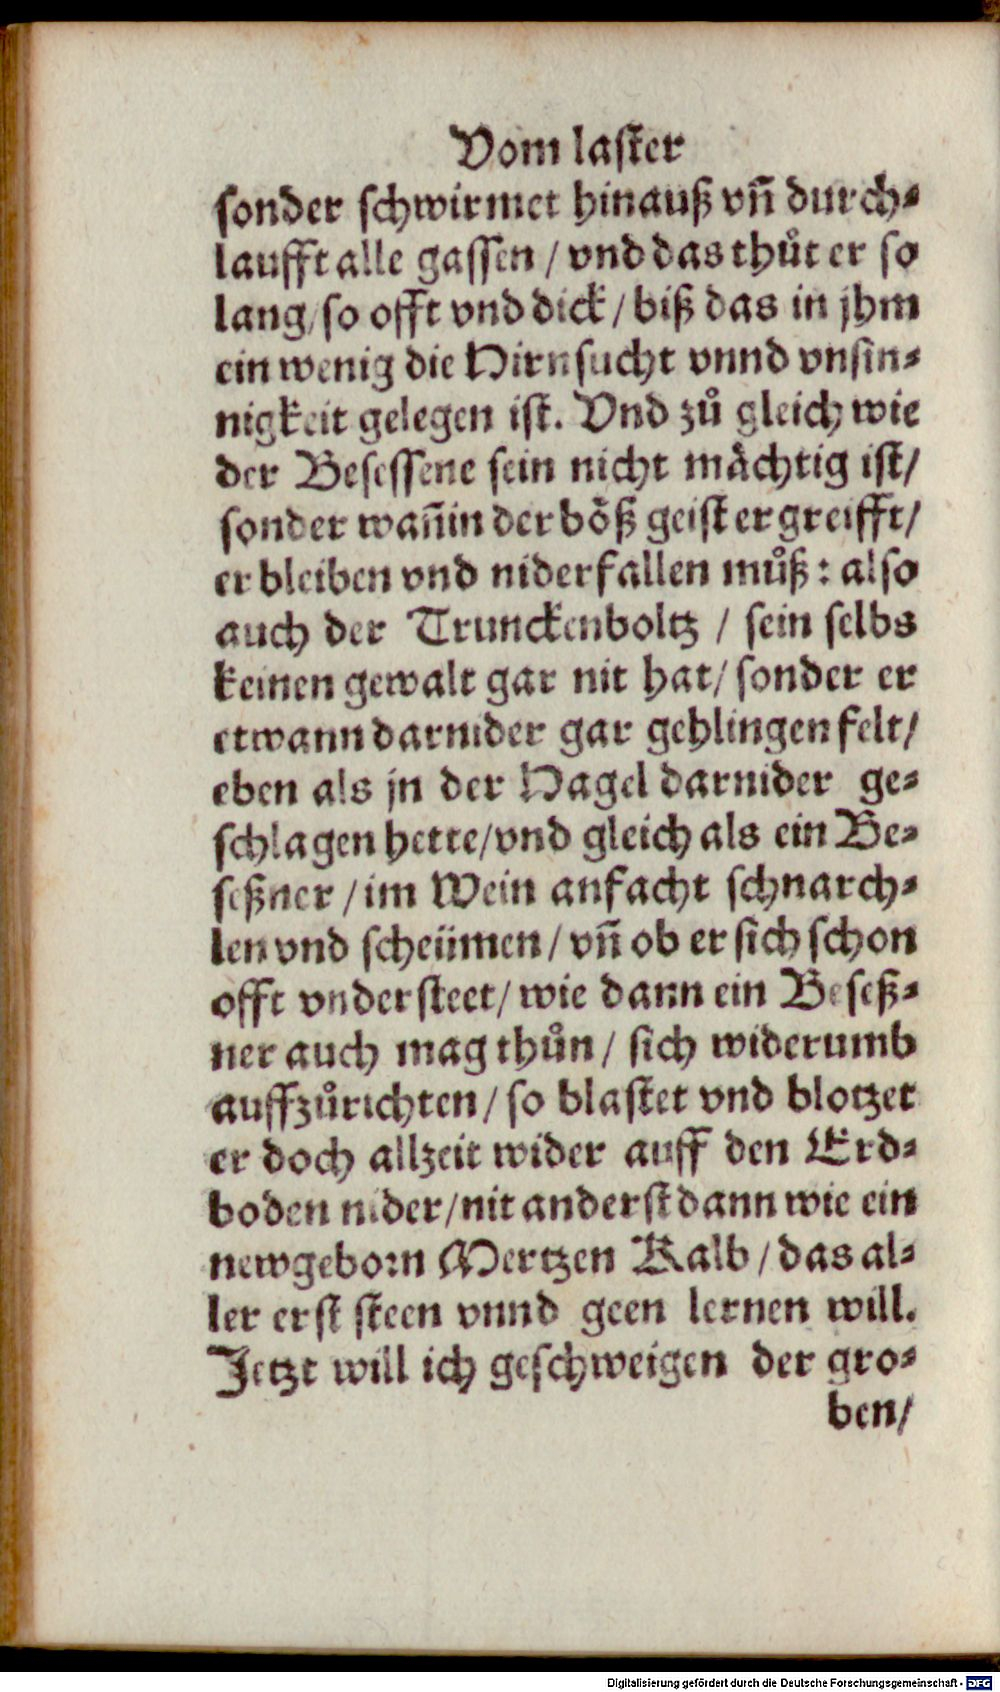 Vom laster
sonder schwirmet hinauß vñ durch⸗
laufft alle gassen / vnd das thůt er so
lang/so offt vnd dick / biß das in jhm
ein wenig die Hirnsucht vnnd vnsin⸗
nigkeit gelegen ist. Vnd zů gleich wie
der Besessene sein nicht mächtig ist/
sonder wañ in der böß geist ergreifft/
er bleiben vnd niderfallen můß: also
auch der Trunckenboltz / sein selbs
keinen gewalt gar nit hat/ sonder er
etwann darnider gar gehlingen felt/
eben als jn der Hagel darnider ge⸗
schlagen hette/vnd gleich als ein Be⸗
seßner /im Wein anfacht schnarch⸗
len vnd scheümen/ vñ ob er sich schon
offt vndersteet/ wie dann ein Beseß⸗
ner auch mag thůn/ sich widerumb
auffzůrichten/ so blastet vnd blotzet
er doch allzeit wider auff den Erd⸗
boden nider/nit anderst dann wie ein
newgeborn Mertzen Kalb/das al⸗
ler erst steen vnnd geen lernen will.
Jetzt will ich geschweigen der gro⸗
ben/
Digitalisierung gefördert durch die Deutsche Forschungsgemeinschaft - DFG